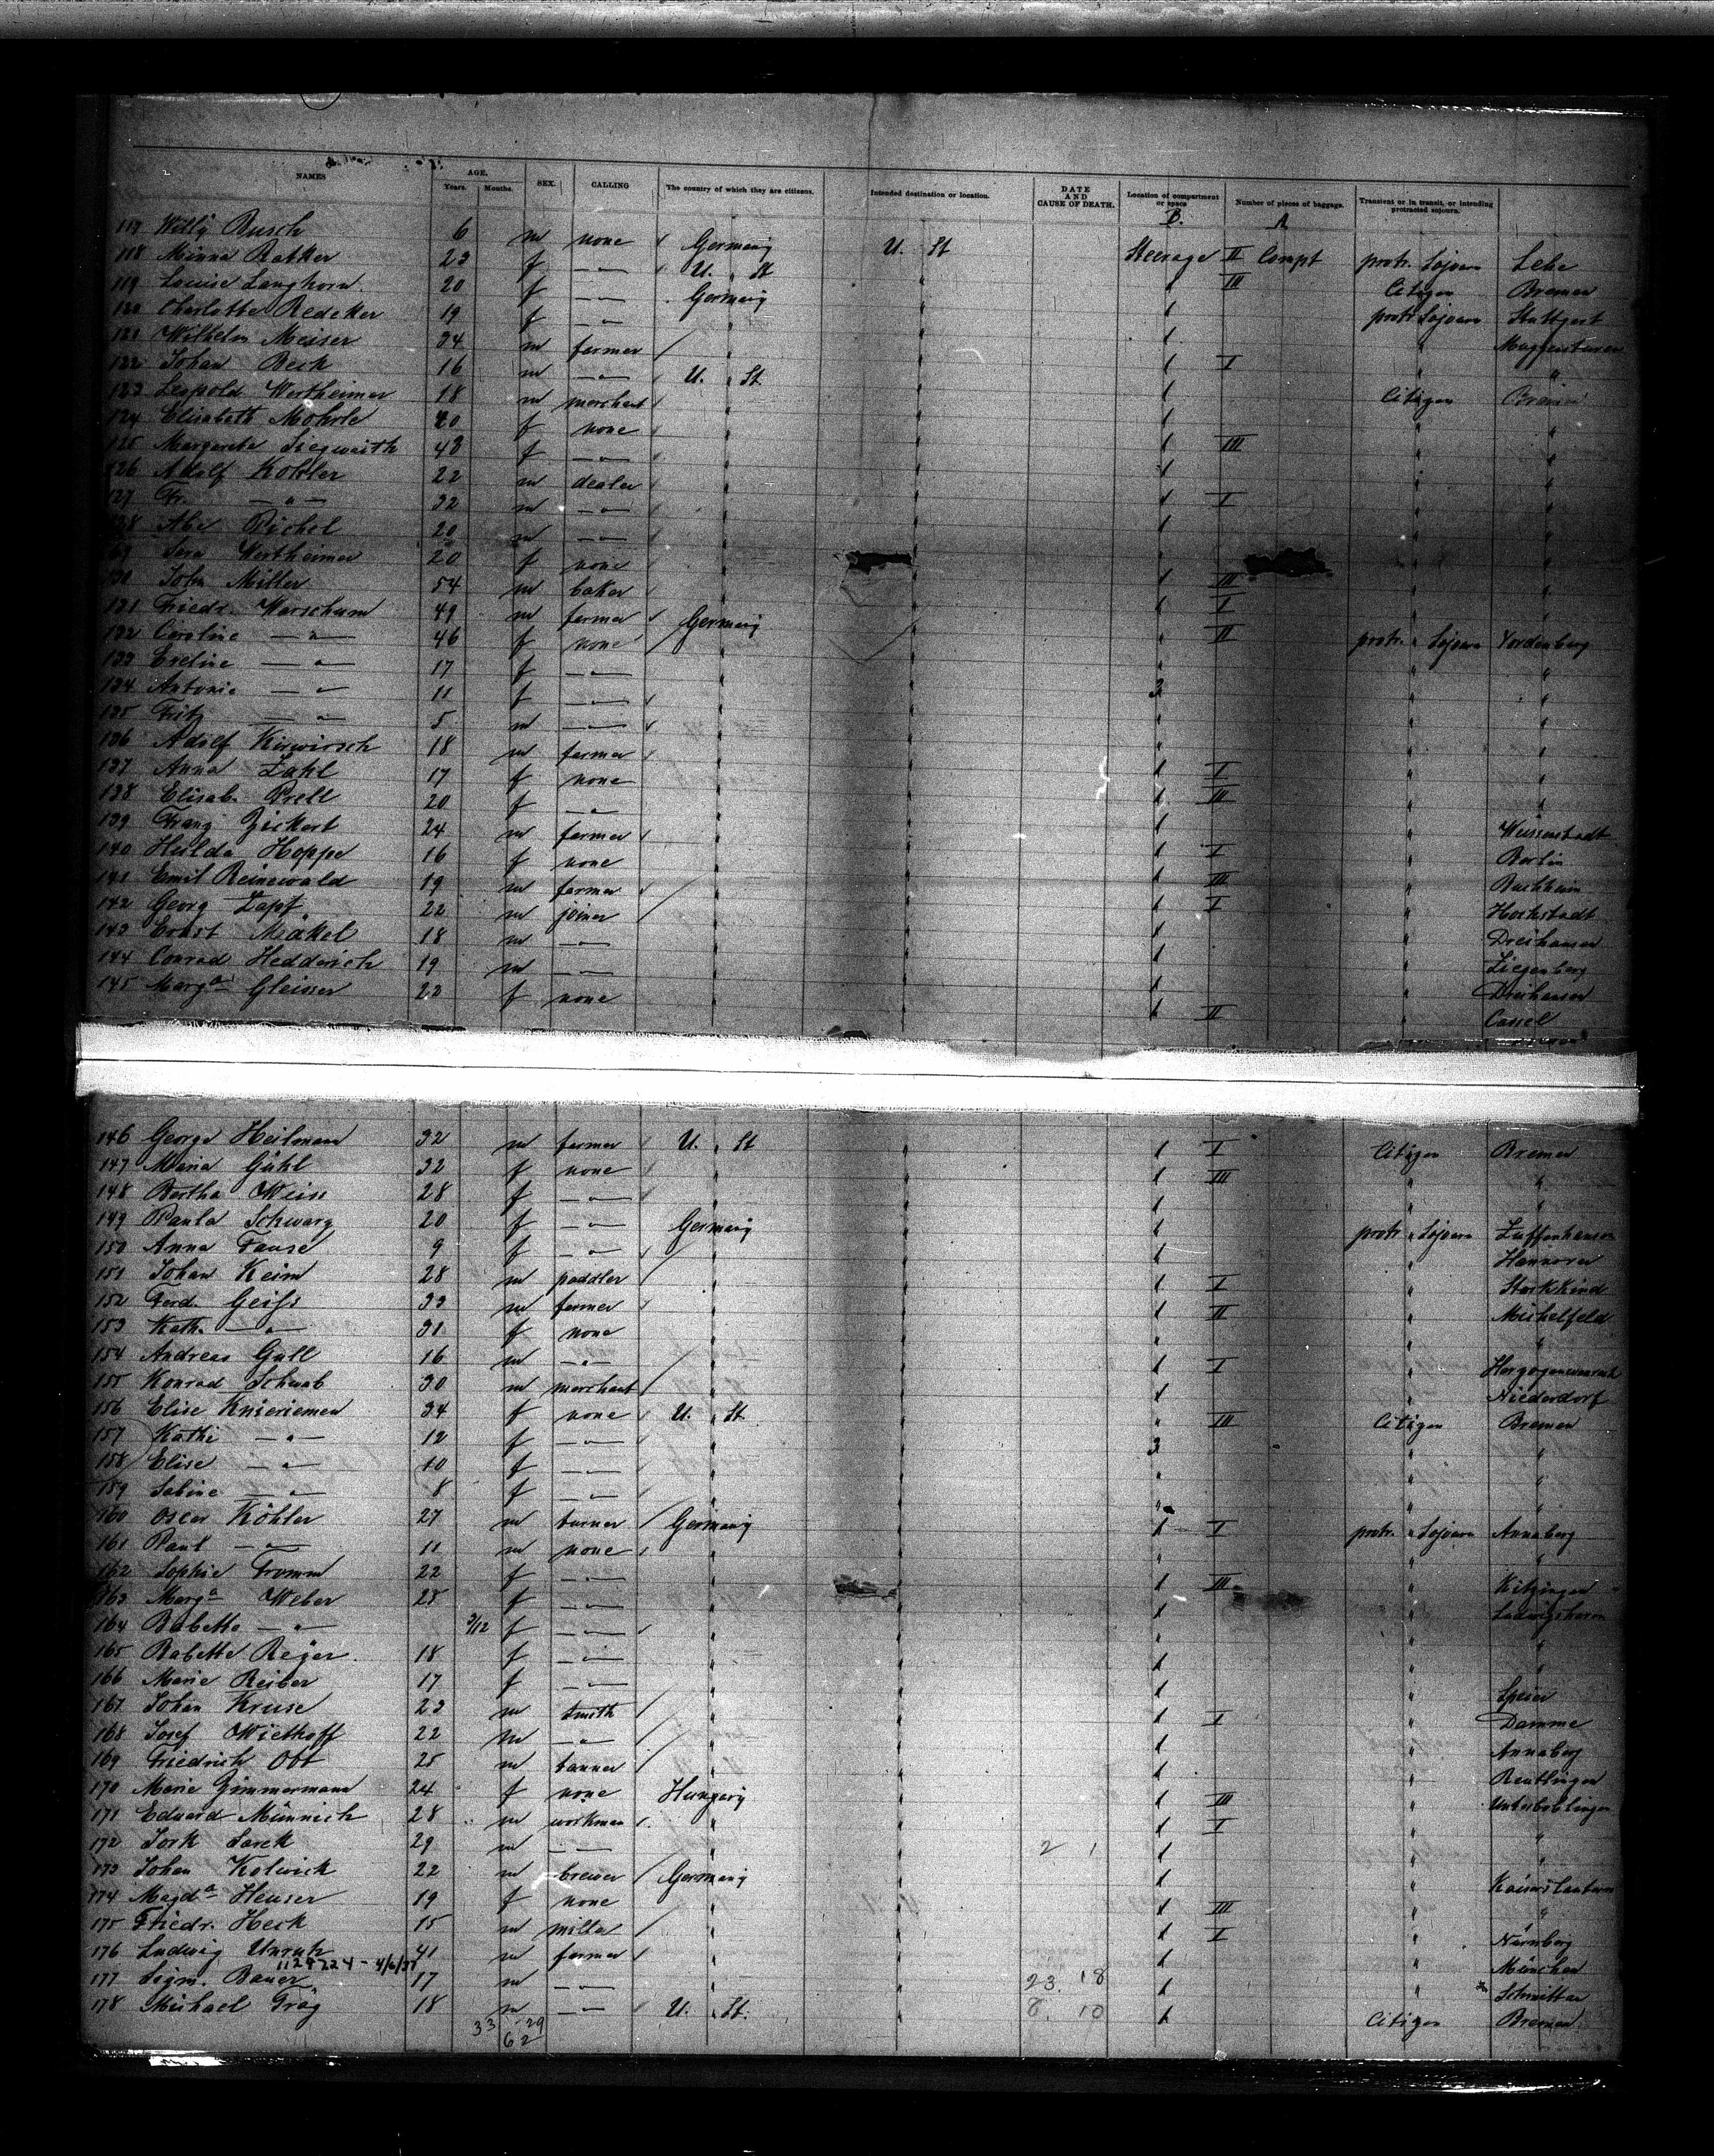 NAMES AGE. Years. Months. SEX. CALLING The country of which they are citizens. Intended destination or location. DATE AND CAUSE OF DEATH. Location of compartment or space Number of pieces of baggage. Transient or in transit, or intending protracted sojourn.
B. A
117 Willy Busch 6 m none Germany U. St Steerage II Compt protr. Sojourn Lehe
118 Minna Ratker 23 f —"— U. " St " III Citizen Bremen
119 Louise Langhorn 20 f —"— Germany " 1 protr Sojourn Stuttgart
120 Charlotte Redeker 19 f —"— " " 1 "
121 Wilhelm Meiser 24 m farmer " " 1 I " "
122 Johan Beck 16 m —"— U. " St " 1
123 Leopold Wertheimer 18 m merchant " " 1 Citizen Bremen
124 Elisabeth Mohrle 20 f none " " 1 III " "
125 Margarete Siegwarth 48 f —"— " " 1 " "
126 Adolf Kohler 22 m dealer " " 1 I " "
127 Fr. —"— 32 m —"— " " 1 " "
128 Abe Pichel 20 m —"— " " " "
129 Sara Wertheimer 20 f none " " 1 III " "
130 John Miller 54 m baker " " 1 I " "
131 Friedr. Warschum 49 m farmer Germany " " II protr. " Sojourn Vordenberg
132 Caroline —"— 46 f none " " " " "
133 Eveline —"— 17 f —"— " " 3 " "
134 Antonie —"— 11 f —"— " " " " "
135 Fritz —"— 5 m —"— " " " " "
136 Adolf Kirwirsch 18 m farmer " " 1 I " "
137 Anna Zahl 17 f none " " 1 III " "
138 Elisab. Prell 20 f —"— " " 1 " Weissenstadt
139 Franz Zickert 24 m farmer " " 1 I " Berlin
140 Hulda Hoppe 16 f none " " 1 III " Buchheim
141 Emil Reinewald 19 m farmer " " 1 I " Hochstadt
142 Georg Zapf 22 m joiner " " 1 " Dreihausen
143 Ernst Mäkel 18 m —"— " " 1 " Ziegenberg
144 Conrad Hedderich 19 m —"— " " 1 " Dreihausen
145 Marga Gleisser 22 f none " " 1 II " Cassel
146 George Heilmann 32 m farmer U. " St " 1 I Citizen Bremen
147 Maria Gühl 32 f none " " 1 III " "
148 Bertha Weise 28 f —"— " " 1 " "
149 Paula Schwarz 20 f —"— Germany " 1 protr. " Sojourn Zuffenhausen
150 Anna Fause 9 f —"— " " 1 " Hannover
151 Johan Keim 28 m paddler " " 1 I "
152 Ferd. Geiss 33 m farmer " " 1 II " Michelfeld
153 Kath. —"— 31 f none " " " " "
154 Andreas Gall 16 m —"— " " 1 I "
155 Konrad Schwab 30 m merchant " " 1 " Niederdorf
156 Elise Knieriemen 34 f none U. " St. " " III Citizen Bremen
157 Kathi —"— 12 f —"— " " 3 " "
158 Elise —"— 10 f —"— " " " " "
159 Sabine —"— 8 f —"— " " " " "
160 Oscar Köhler 27 m turner Germany " 1 I protr. " Sojourn Annaberg
161 Paul —"— 11 m none " " " " "
162 Sophie Fromm 22 f —"— " " 1 III " Kitzingen
163 Marga Weber 25 f —"— " " 1 " Ludwigshafen
164 Babette —"— 3/12 f —"— " " " " "
165 Babette Reger 18 f —"— " " 1 " "
166 Marie Reiber 17 f —"— " " 1 " Speier
167 Johan Kruse 23 m smith " " 1 I " Damme
168 Josef Wiethoff 22 m —"— " " 1 " Annaberg
169 Friedrich Ott 25 m tanner " " 1 " Reutlingen
170 Marie Zimmermann 24 f none Hungary " 1 III " Unterboblingen
171 Eduard Münnich 28 m workman " " 1 I " "
172 Jork Sarek 29 m —"— " " 2 1 1 " "
173 Johan Kolwick 22 m brewer Germany " 1 " Kaiserslautern
174 Magda Heuser 19 f none " " 1 III " "
175 Friedr. Heck 15 m miller " " 1 I " Nürnberg
176 Ludwig Unruh 41 m farmer " " 1 " München
1129724 - 4/6/38
177 Sigm. Bauer 17 m —"— " " 23. 18 1 " Schnittar
178 Michael Träg 18 m —"— U. " St. " 8. 10 1 Citizen Bremen
33 29
62